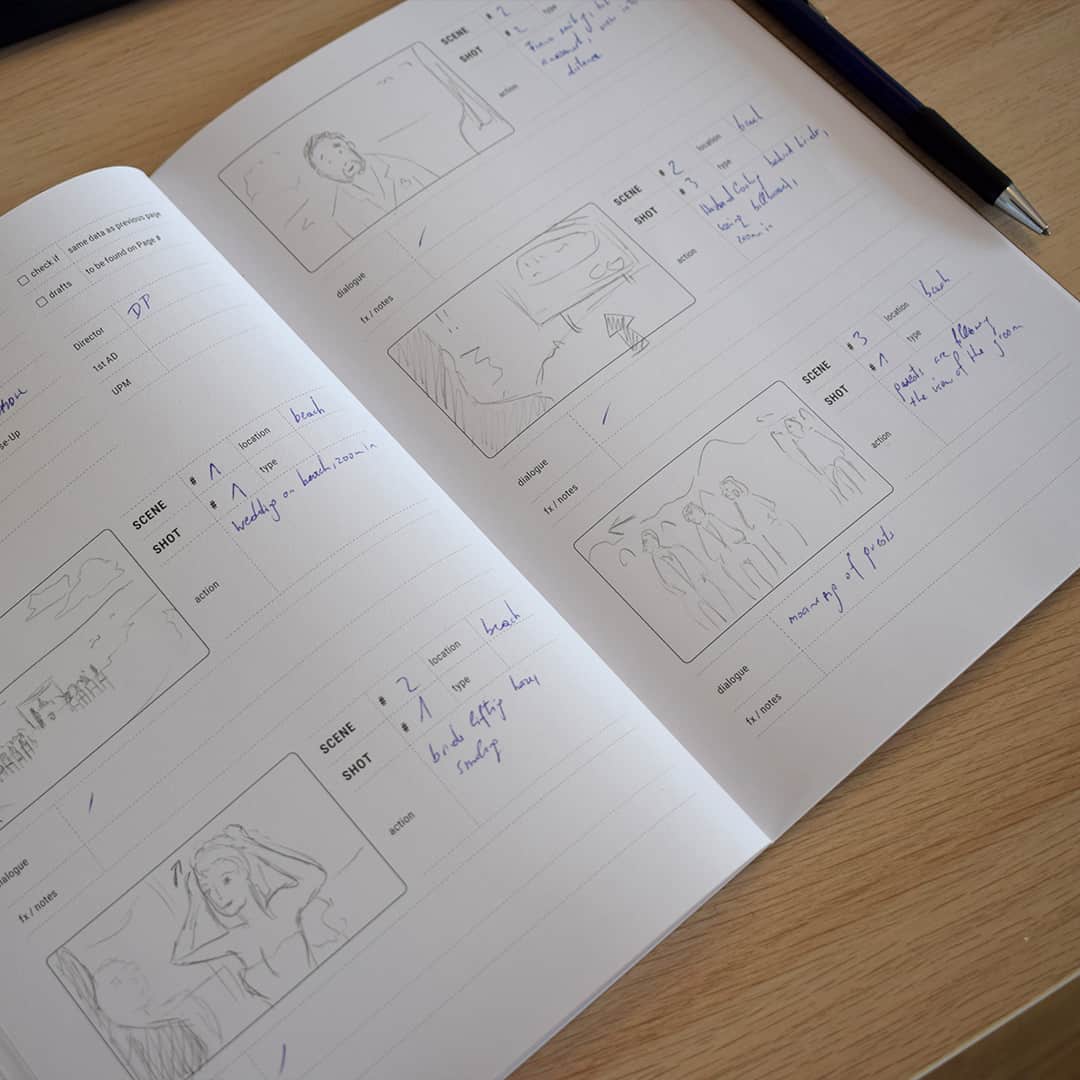 check if same data as previous page
drafts to be found on Page #
Director DP
1st AD
UPM
se-Up
SCENE # 1 location beach
SHOT # 1 type
wedding on beach, zoom in
action
dialogue /
fx / notes
SCENE # 2 location beach
SHOT # 1 type
bride lifting
smiling
action
/
SCENE # 2
SHOT # 2 type
distance
action
dialogue /
fx / notes
SCENE # 2 location beach
SHOT # 3 type
behind
zoom in
action
!!
dialogue /
fx / notes
SCENE # 3 location beach
SHOT # 1 type
guests are following
the view of the groom
action
dialogue of guests
fx / notes